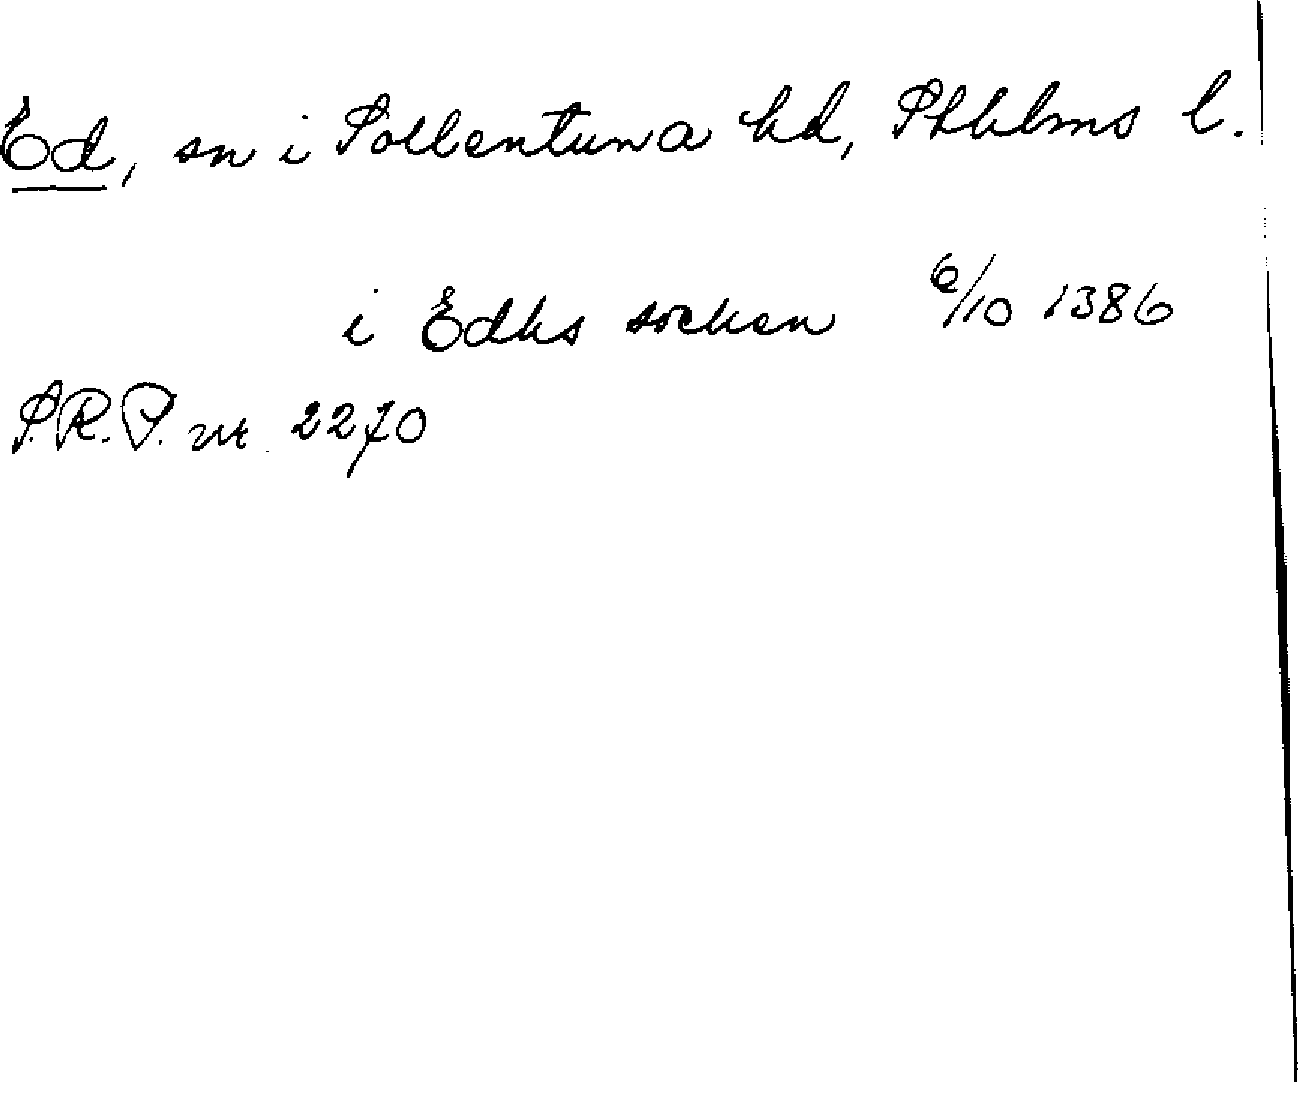 Ed, sn i Sollentuna hd, Sthlms l.
i Edhs socken 6/10 1386
S.R.P. nr 2270